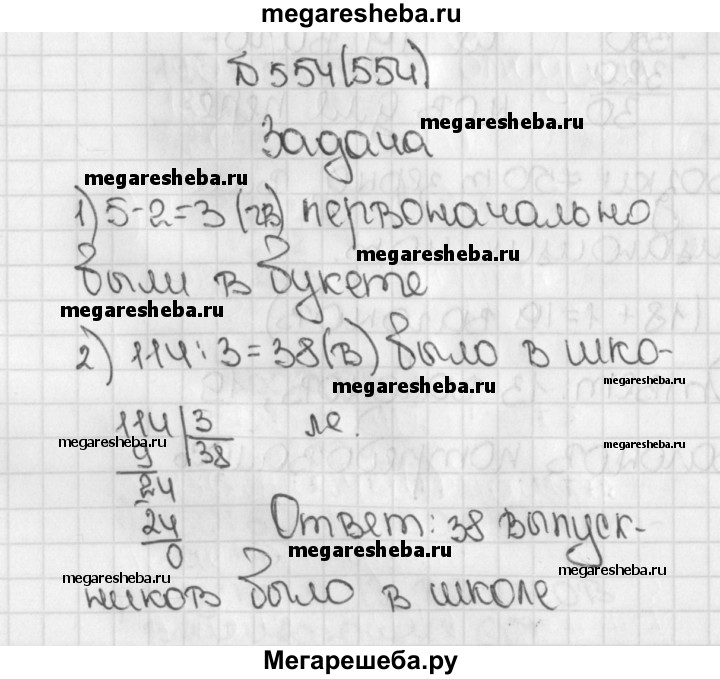 megaresheba.ru
№554(554)
megaresheba.ru
Задача
megaresheba.ru
1) 5-2=3 (цв) первоначально
были в букете
megaresheba.ru
2) 114:3=38(в) было в шко-
megaresheba.ru megaresheba.ru
114 3 ле.
megaresheba.ru megaresheba.ru
9 38
24
24 Ответ: 38 выпуск-
megaresheba.ru
0
megaresheba.ru megaresheba.ru
ников было в школе
Мегарешеба.ру